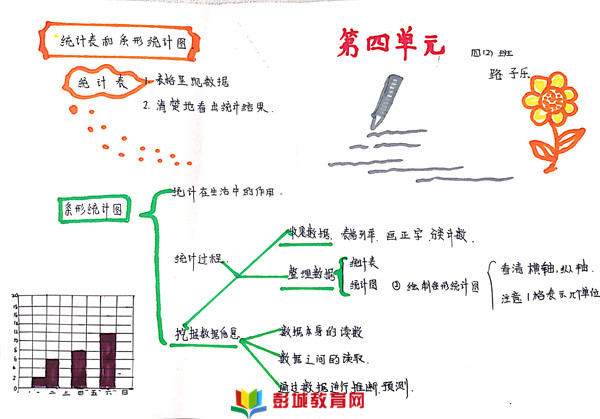 统计表和条形统计图
第四单元
四(2)班
路子乐
统计表
1. 表格呈现数据
2. 清楚地看出统计结果.
条形统计图
统计在生活中的作用.
统计过程
收集数据
画正字
整理数据
统计表
统计图
① 绘制条形统计图
看清横轴,纵轴.
注意1格表示几个单位
挖掘数据信息
数据本身的读取
数据之间的读取.
通过数据进行推断.预测.
彭城教育网